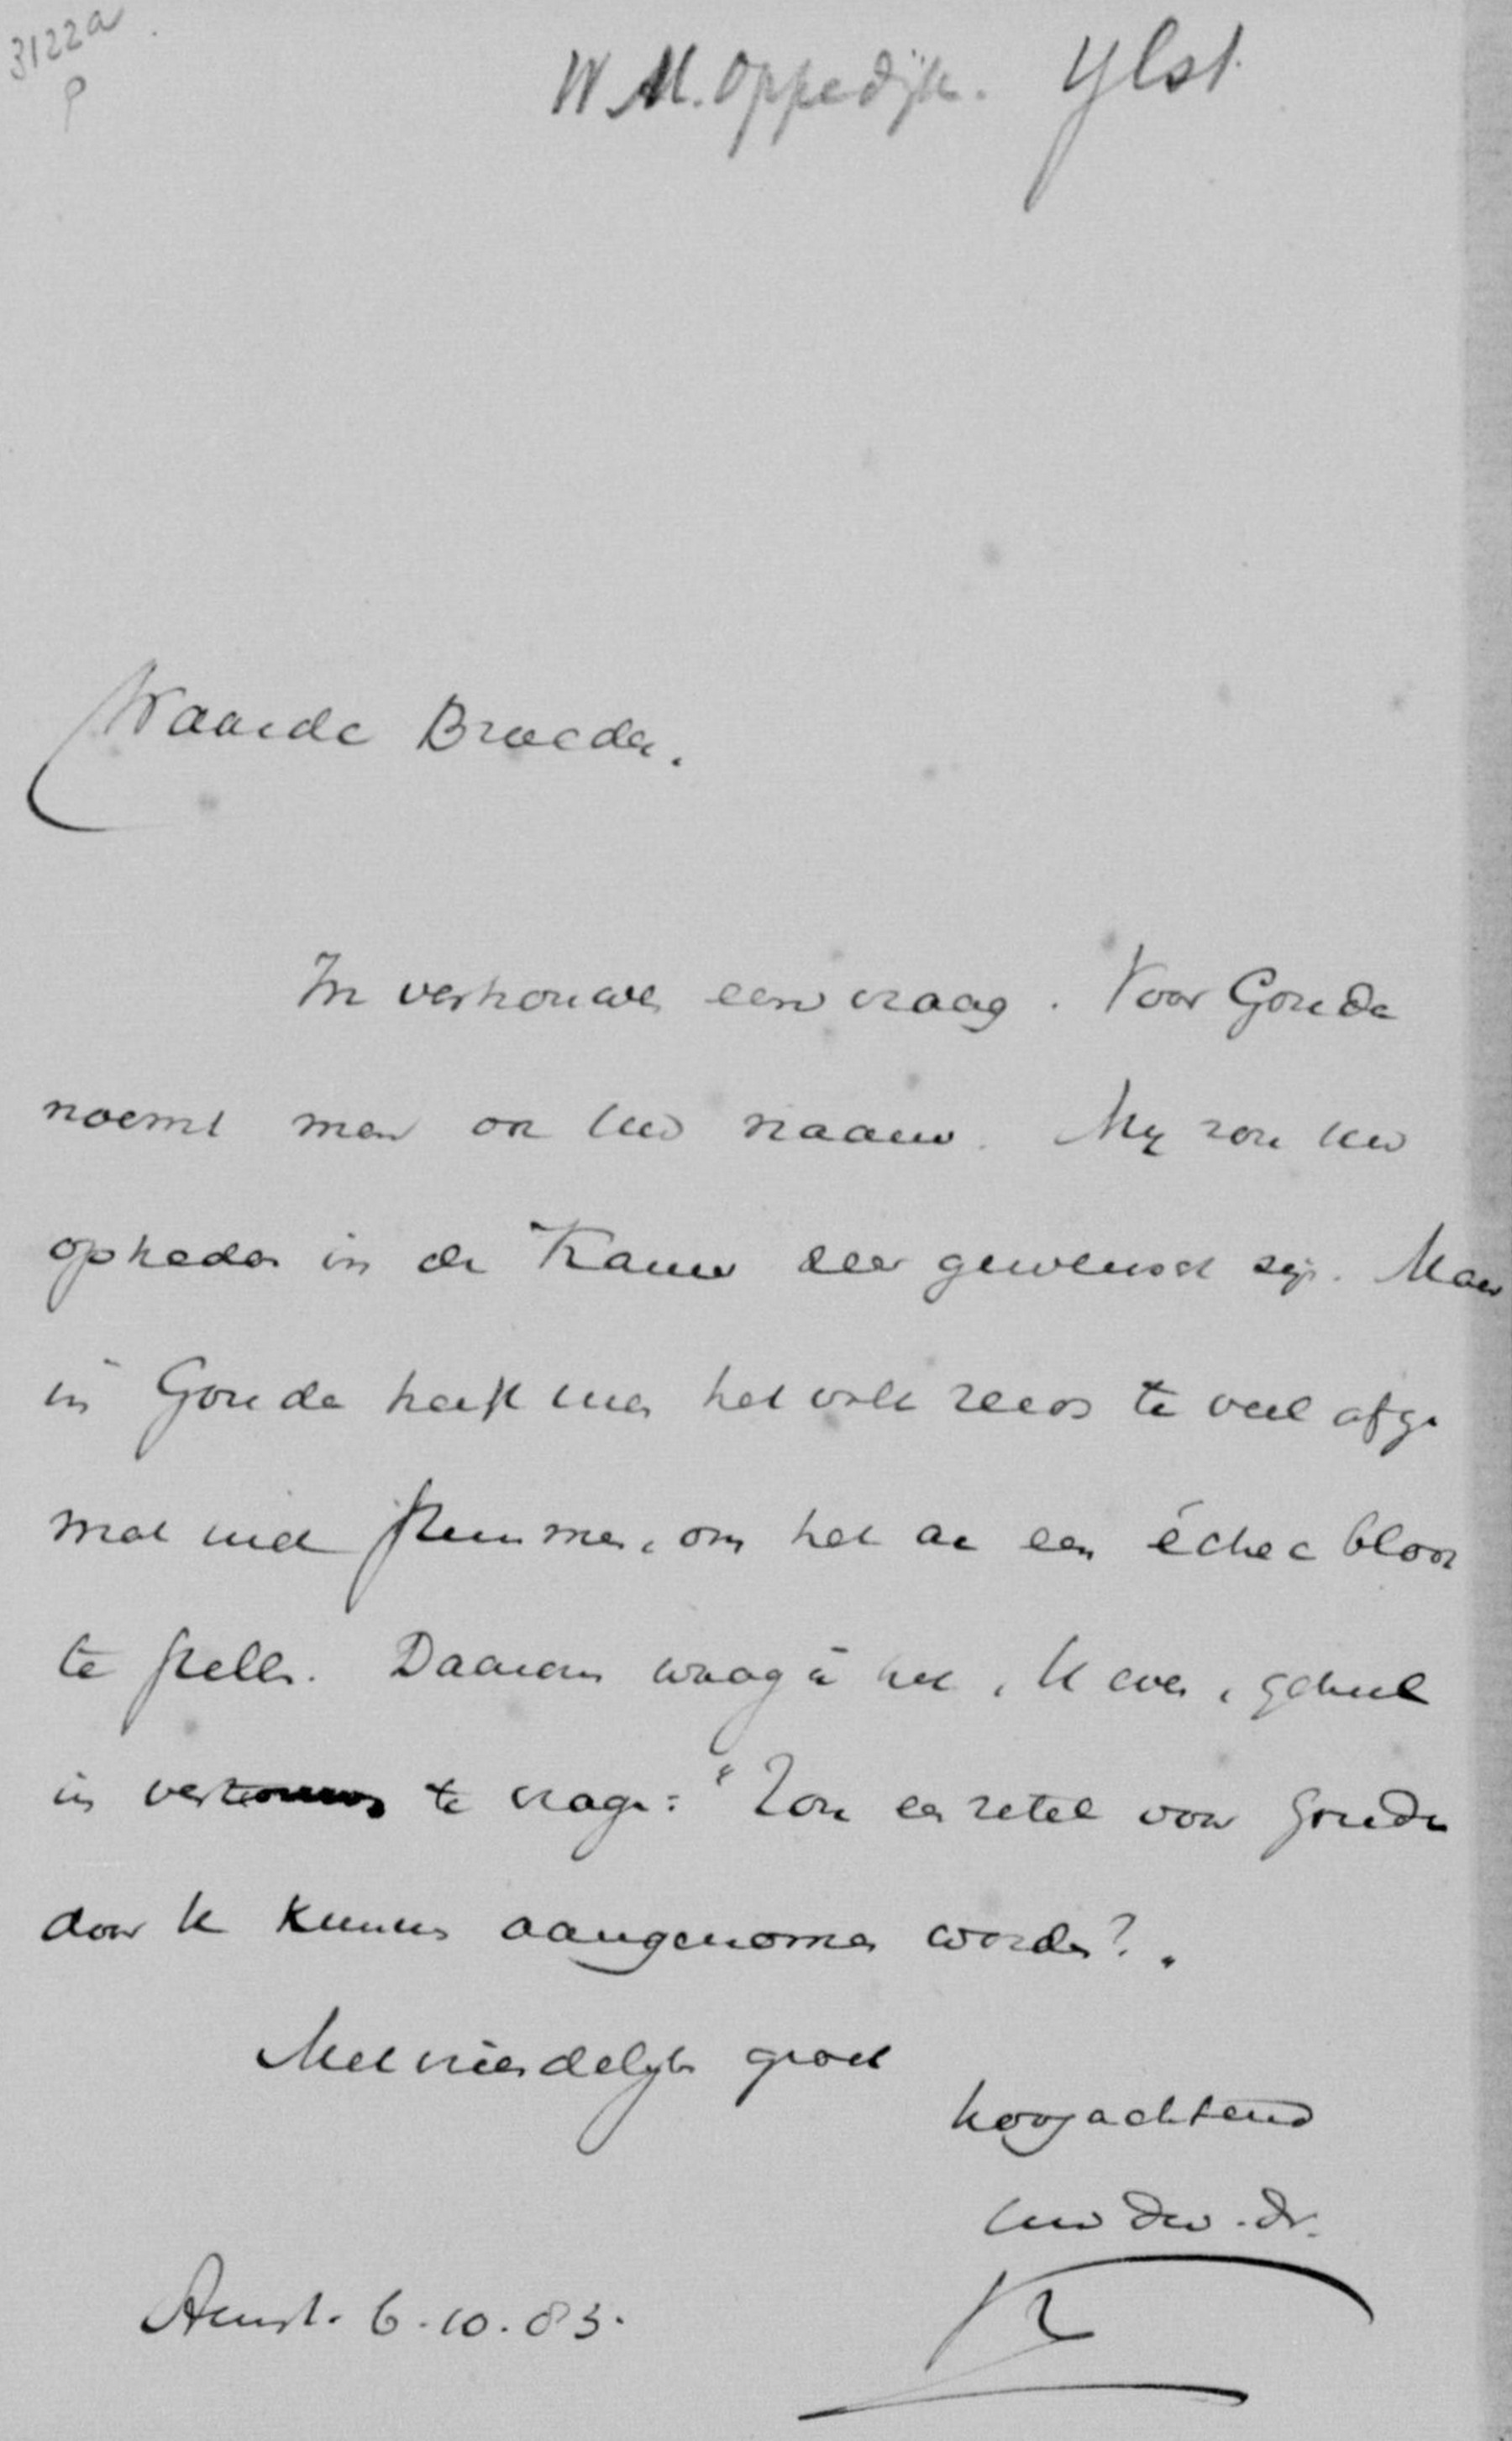 3122a
W. M. Oppedijk. Ylst.
Waarde Broeder.
In vertrouwen een vraag. Voor Gouda
noemt men ook Uw naam. Mij zou Uw
optreden in de Kamer zeer gewenscht zijn. Maar
in Gouda heeft men het volk reeds te veel afge
mat met stemmen, om het aan een échec bloot
te stellen. Daarom waag ik het, U even, geheel
in vertrouwen te vragen: "Zou een zetel voor Gouda
door U kunnen aangenomen worden?"
Met vriendelijke groet
hoogachtend
Uw dw. dr.
K
Amst. 6.10.83.